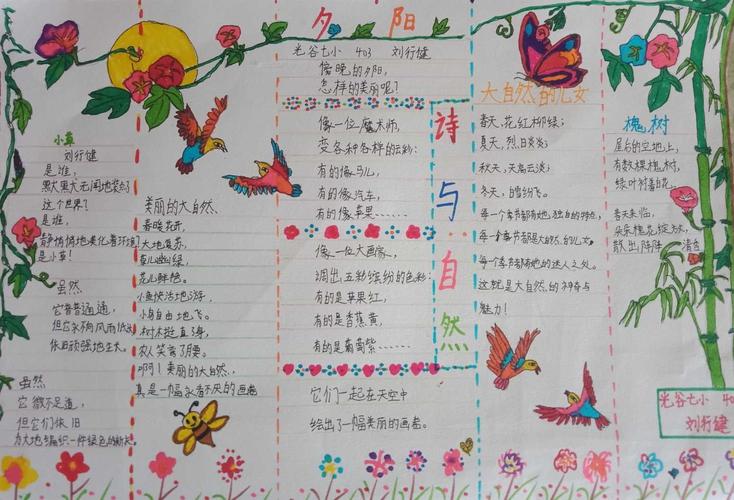 小草
刘行健
是谁，
默默无闻地装点了
这个世界？
是谁，
静悄悄地美化着环境
是小草！
虽然
它普普通通，
但它永不向风雨低头
依旧顽强地生长。
虽然
它微不足道，
但它们依旧
为大地编织一件绿色的新衣。
美丽的大自然
春暖花开，
大地复苏，
草儿嫩绿，
花儿鲜艳。
小鱼快活地游，
小鸟自由地飞。
树木挺直身，
农人笑弯了腰。
啊！美丽的大自然，
真是一幅永看不厌的画卷
夕阳
光谷七小 403 刘行健
傍晚的夕阳，
怎样的美丽呢？
像一位魔术师，
变各种各样的云彩：
有的像马儿，
有的像汽车，
有的像苹果……
像一位大画家，
调出五彩缤纷的色彩：
有的是苹果红，
有的是香蕉黄，
有的是葡萄紫……
它们一起在天空中
绘出了一幅美丽的画卷。
诗与自然
大自然的儿女
春天，花红柳绿；
夏天，烈日炎炎；
秋天，天高云淡；
冬天，白雪纷飞。
每一个季节都有她独自的特点，
每一个季节都是大自然的儿女。
每个季节都有她的迷人之处。
这就是大自然的神奇与
魅力！
槐树
屋后的空地上，
有数棵槐树，
绿叶衬着花。
春天来临，
朵朵槐花绽放，
散出阵阵清香
光谷七小 40
刘行健